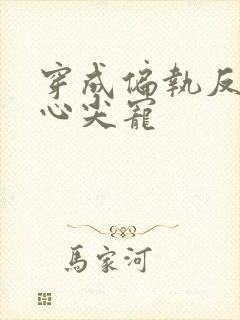 穿成偏執反
心尖寵
馬家河